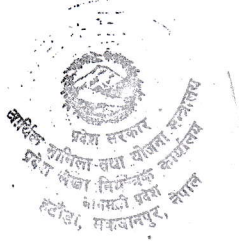 प्रदेश सरकार
आर्थिक मामिला तथा योजना मन्त्रालय
प्रदेश लेखा नियन्त्रक कार्यालय
बागमती प्रदेश
हेटौंडा, मकवानपुर, नेपाल